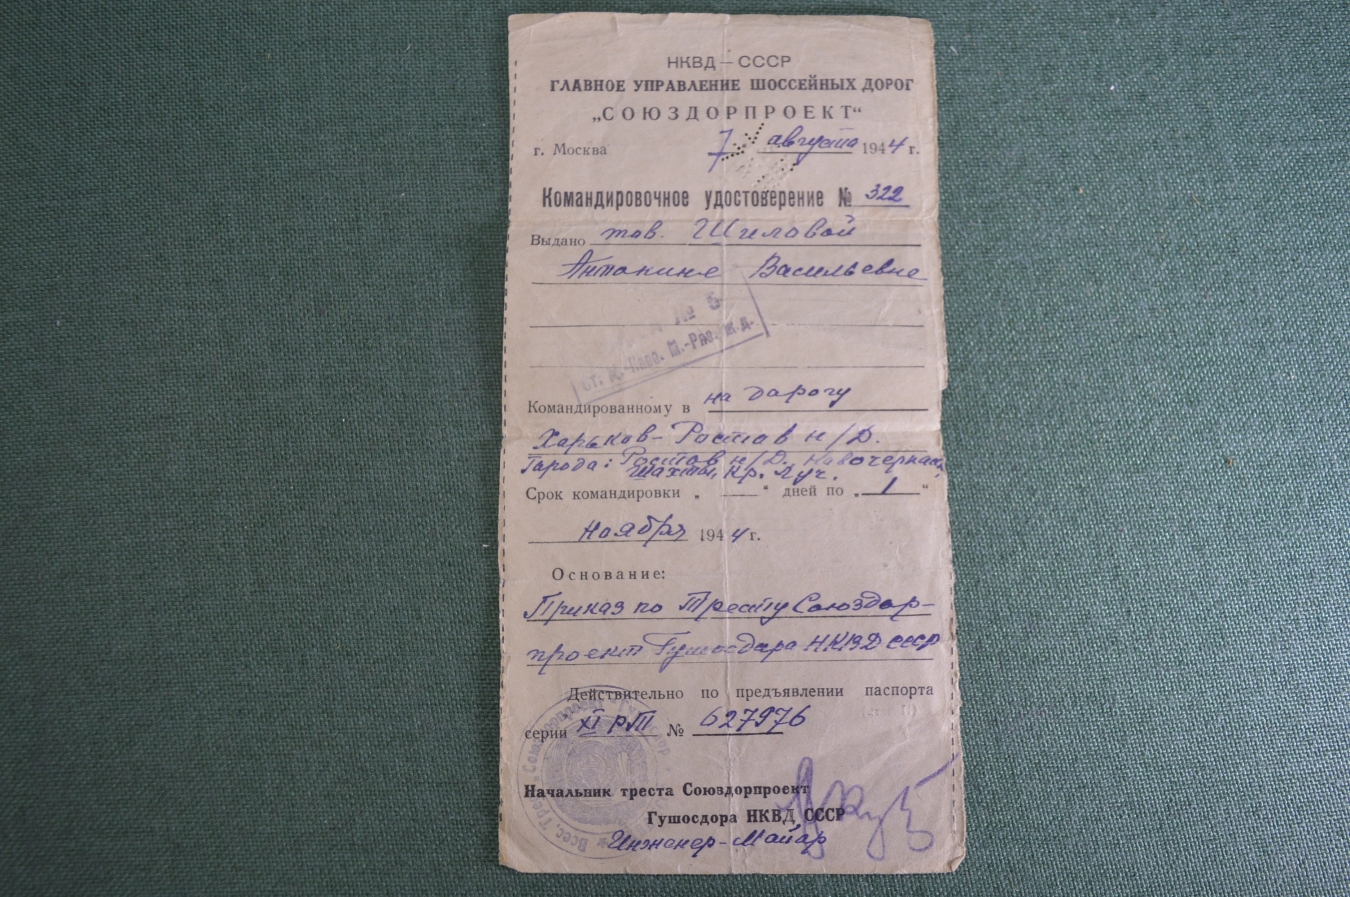 НКВД — СССР
ГЛАВНОЕ УПРАВЛЕНИЕ ШОССЕЙНЫХ ДОРОГ
„СОЮЗДОРПРОЕКТ“
г. Москва 7 августа 1944 г.
Командировочное удостоверение № 322
Выдано тов. Шиловой
Антонине Васильевне
№ 6
ст. М.-Ряз. ж.д.
Командированному в на дорогу
Харьков – Ростов н/Д.
Города: Ростов н/Д. Новочеркасск,
Шахты, Кр. Луч.
Срок командировки „ — “ дней по „ 1 “
ноября 1944 г.
Основание:
Приказ по Тресту Союздор-
проект Гушосдора НКВД СССР
Действительно по предъявлении паспорта
серии XI РТ № 627976
Начальник треста Союздорпроект
Гушосдора НКВД СССР
Инженер-Майор